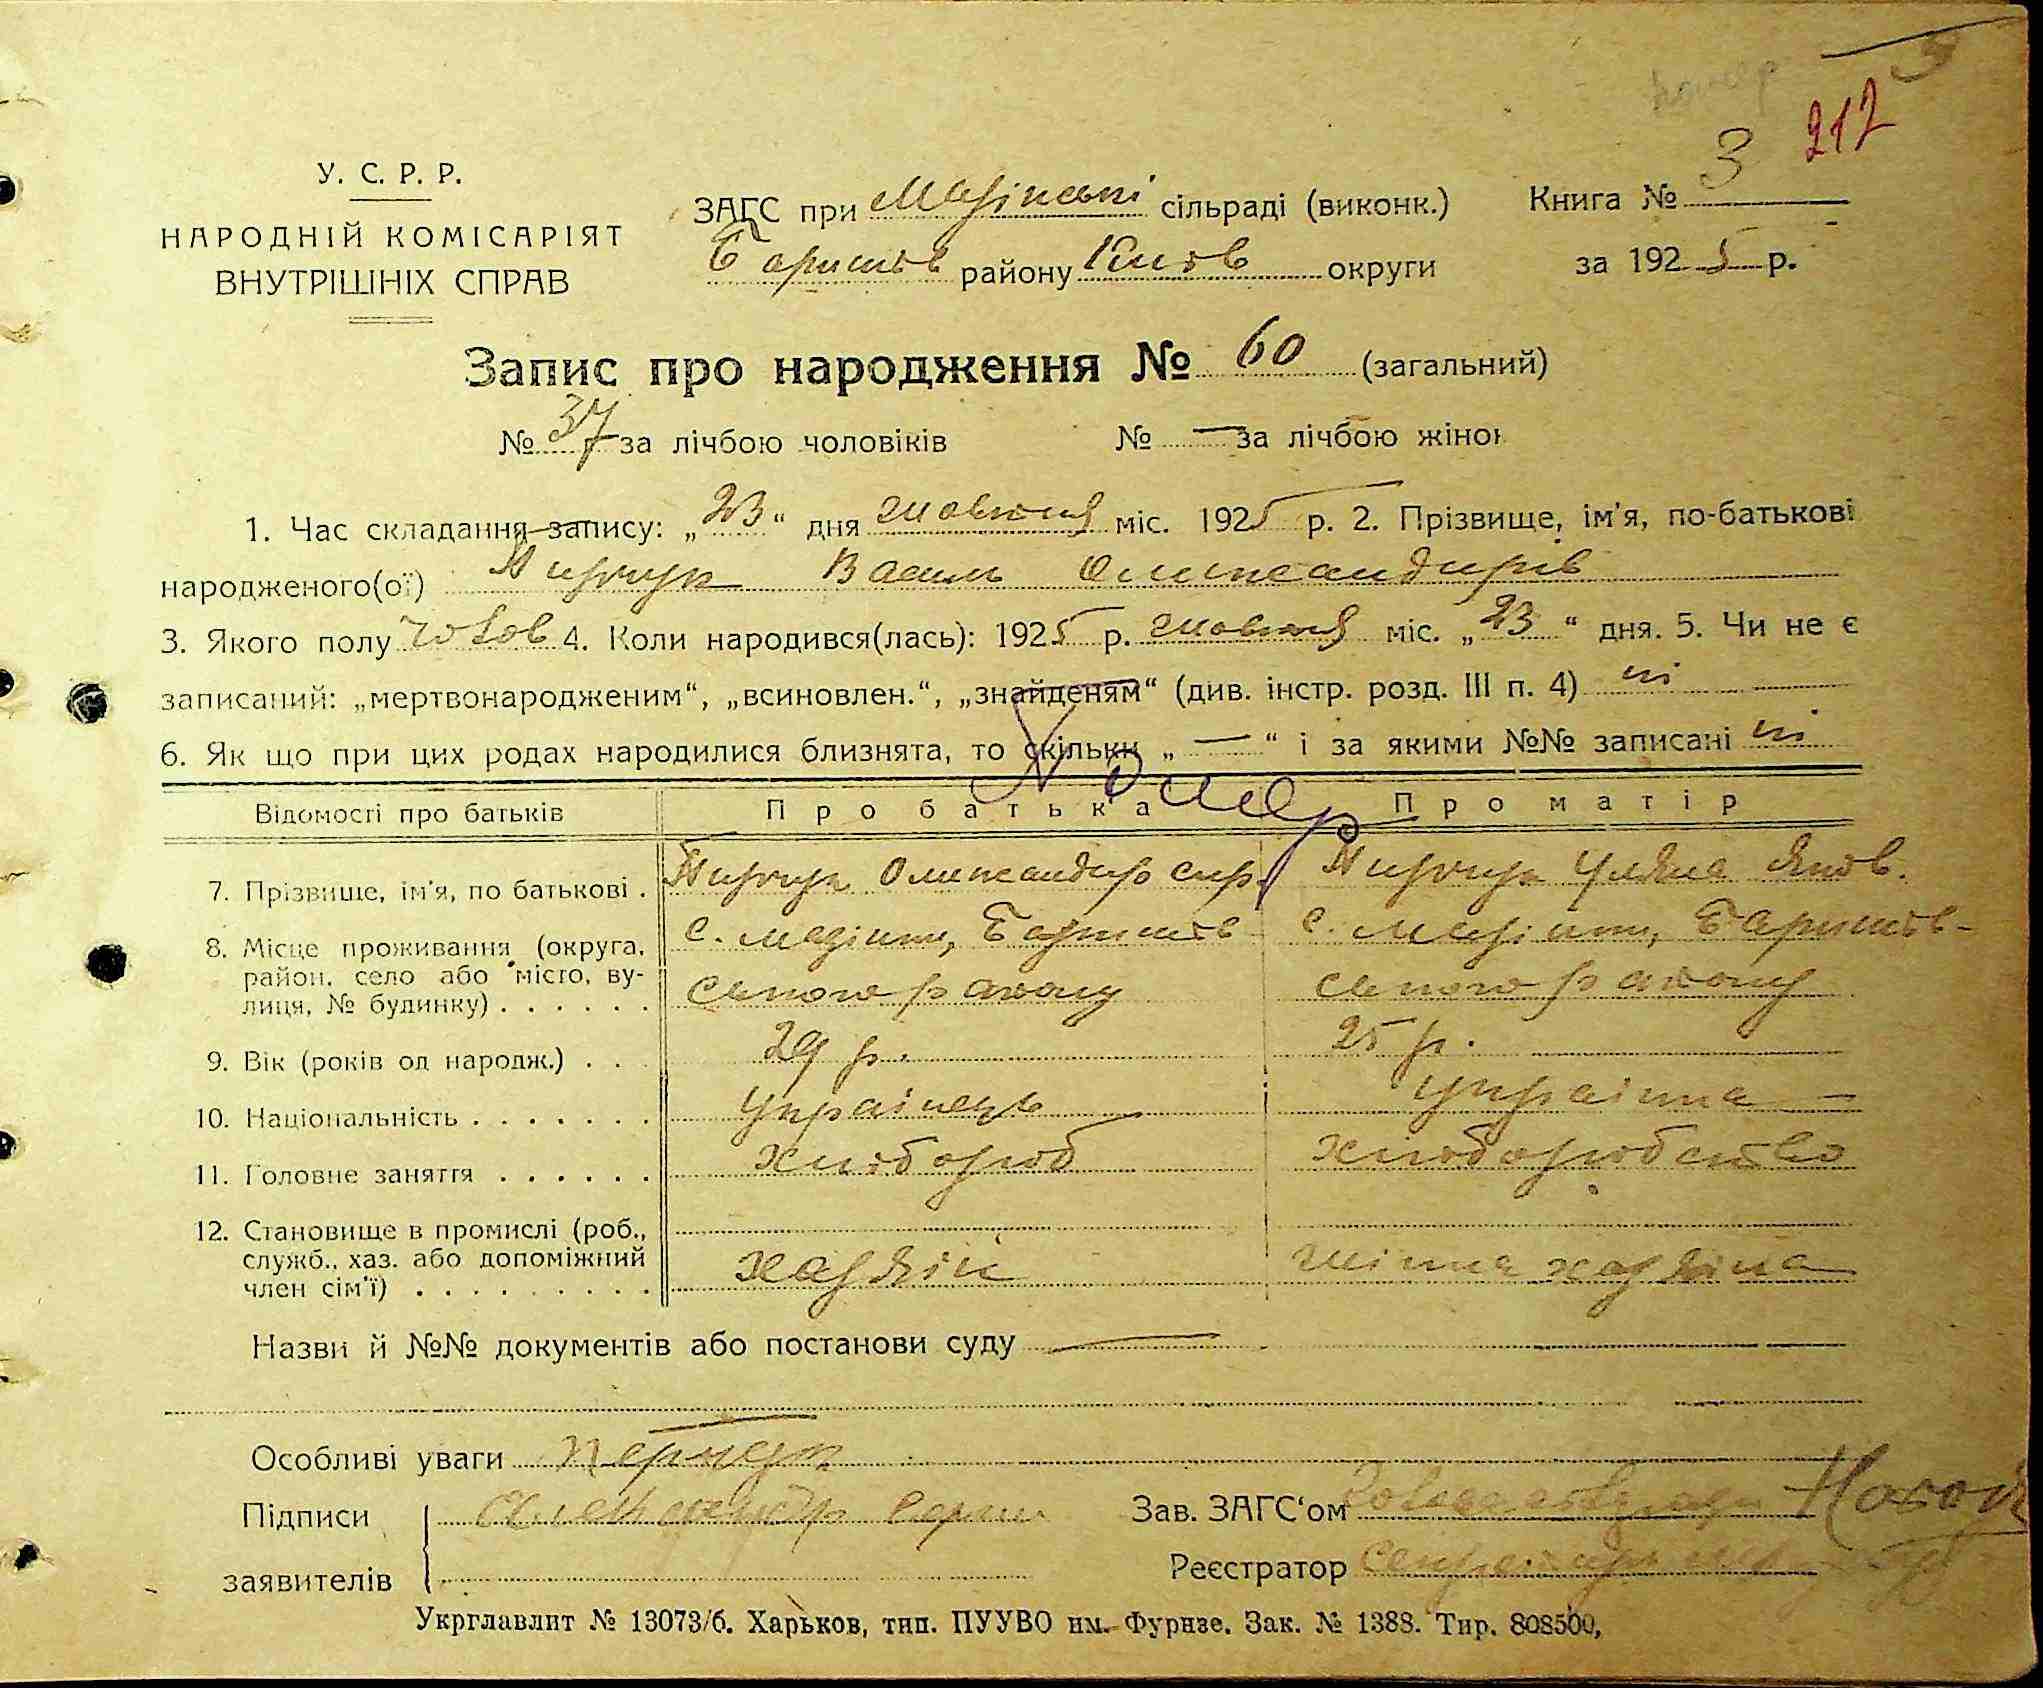 212
У. С. Р. Р.
НАРОДНІЙ КОМІСАРІЯТ
ВНУТРІШНІХ СПРАВ
ЗАГС при сільраді (виконк.)
Баришів району Київ округи
Книга № 3
за 1925 р.
Запис про народження № 60 (загальний)
№ 37 за лічбою чоловіків № — за лічбою жінок
1. Час складання запису: „23“ дня жовтня міс. 1925 р. 2. Прізвище, ім'я, по-батькові
народженого(ої) Василь Олександрів
3. Якого полу чолов 4. Коли народився(лась): 1925 р. жовтня міс. „23“ дня. 5. Чи не є
записаний: „мертвонародженим“, „всиновлен.“, „знайденям“ (див. інстр. розд. III п. 4) ні
6. Як що при цих родах народилися близнята, то скільки „—“ і за якими №№ записані ні
Помер
Відомості про батьків Про батька Про матір
7. Прізвище, ім'я, по батькові . Олександр Уляна Яков.
8. Місце проживання (округа, район, село або місто, вулиця, № будинку) . . . . . .
с. Баришів-
ського району
с. Баришів-
ського району
9. Вік (років од народж.) . . . 29 р. 25 р.
10. Національність . . . . . . . Українець Українка
11. Головне заняття . . . . . . хлібороб хліборобство
12. Становище в промислі (роб.,
служб., хаз. або допоміжний
член сім'ї) . . . . . . . . . хазяїн жінка хазяїна
Назви й №№ документів або постанови суду —
Особливі уваги
Підписи
заявителів
Зав. ЗАГС'ом
Реєстратор
Укрглавлит № 13073/б. Харьков, тип. ПУУВО им. Фрунзе. Зак. № 1388. Тир. 808500,